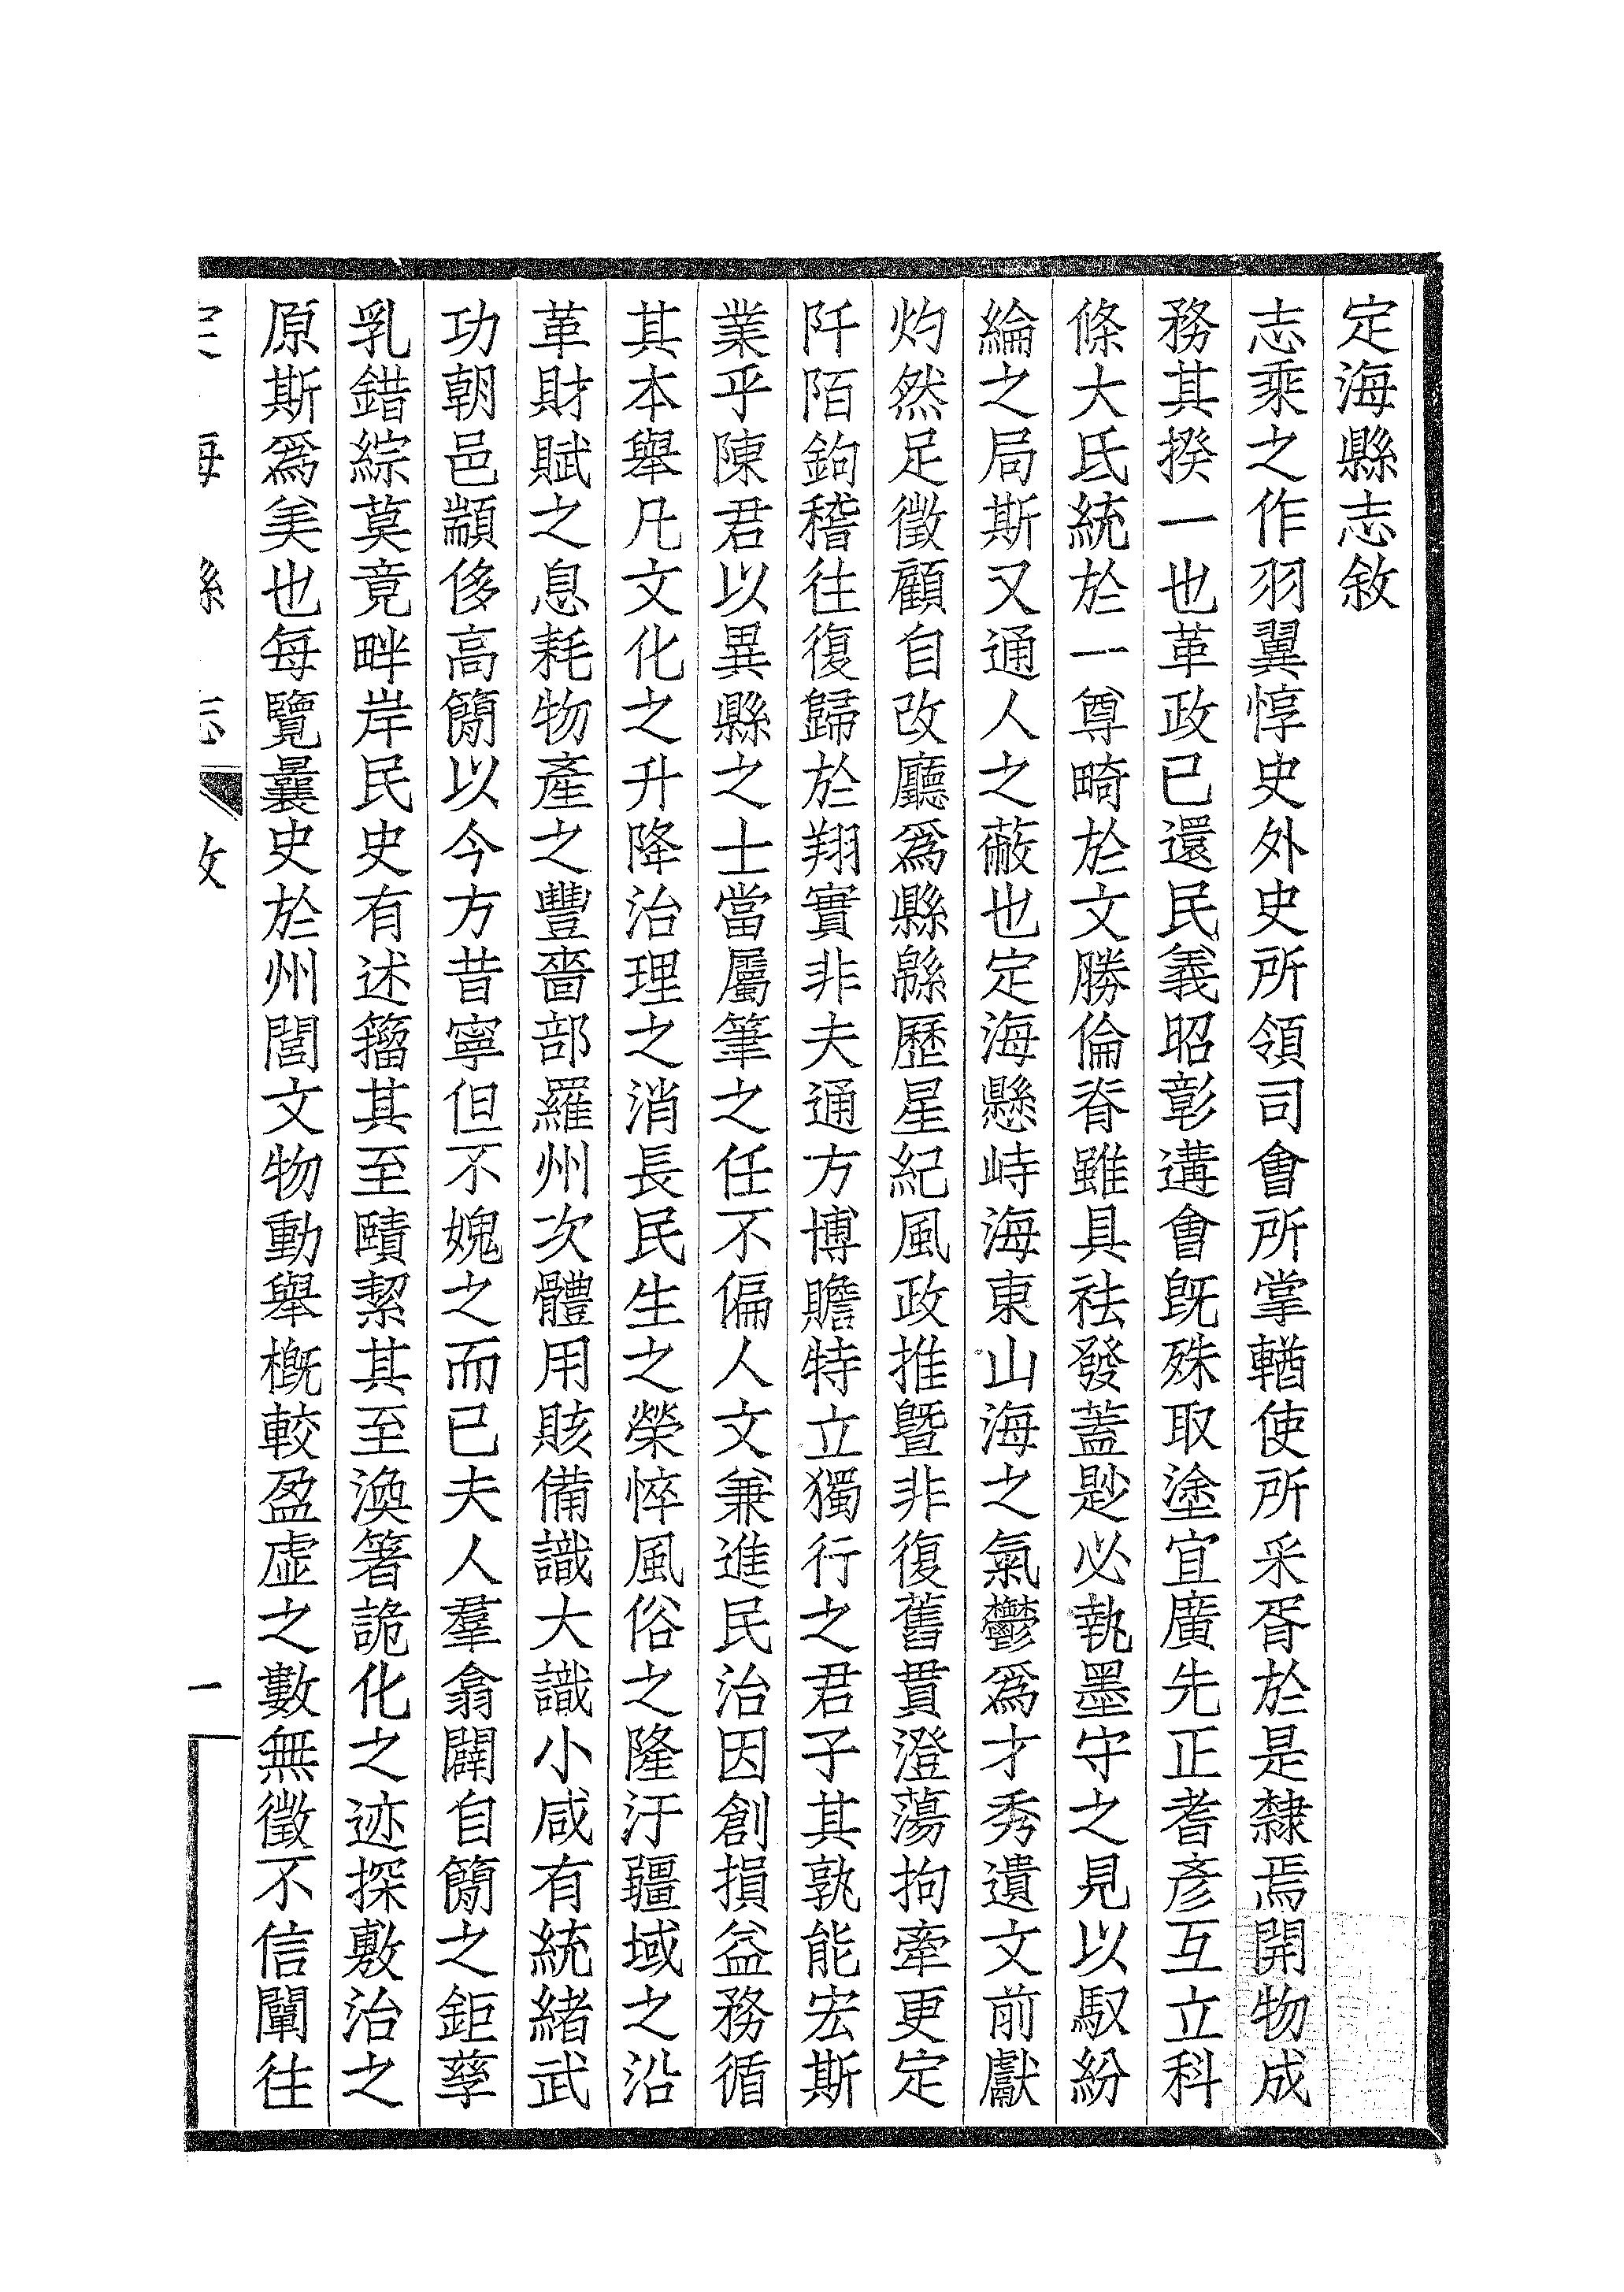 定海縣志敘
志乘之作羽翼惇史外史所領司會所掌輶使所采胥於是隸焉開物成
務其揆一也革政已還民義昭彰遘會旣殊取塗宜廣先正耆彥互立科
條大氐統於一尊畸於文勝倫脊雖具祛發蓋尟必執墨守之見以馭紛
綸之局斯又通人之蔽也定海懸峙海東山海之氣鬱爲才秀遺文前獻
灼然足徵顧自改廳爲縣緜歷星紀風政推暨非復舊貫澄蕩拘牽更定
阡陌鉤稽往復歸於翔實非夫通方博贍特立獨行之君子其孰能宏斯
業乎陳君以異縣之士當屬筆之任不偏人文兼進民治因創損益務循
其本舉凡文化之升降治理之消長民生之榮悴風俗之隆汙疆域之沿
革財賦之息耗物產之豐嗇部羅州次體用賅備識大識小咸有統緒武
功朝邑顓侈高簡以今方昔寧但不媿之而已夫人羣翕闢自簡之鉅孳
乳錯綜莫竟畔岸民史有述籀其至賾絜其至渙箸詭化之迹探敷治之
原斯爲美也每覽曩史於州閭文物動舉槪較盈虛之數無徵不信闡往
定海縣志 敘 一